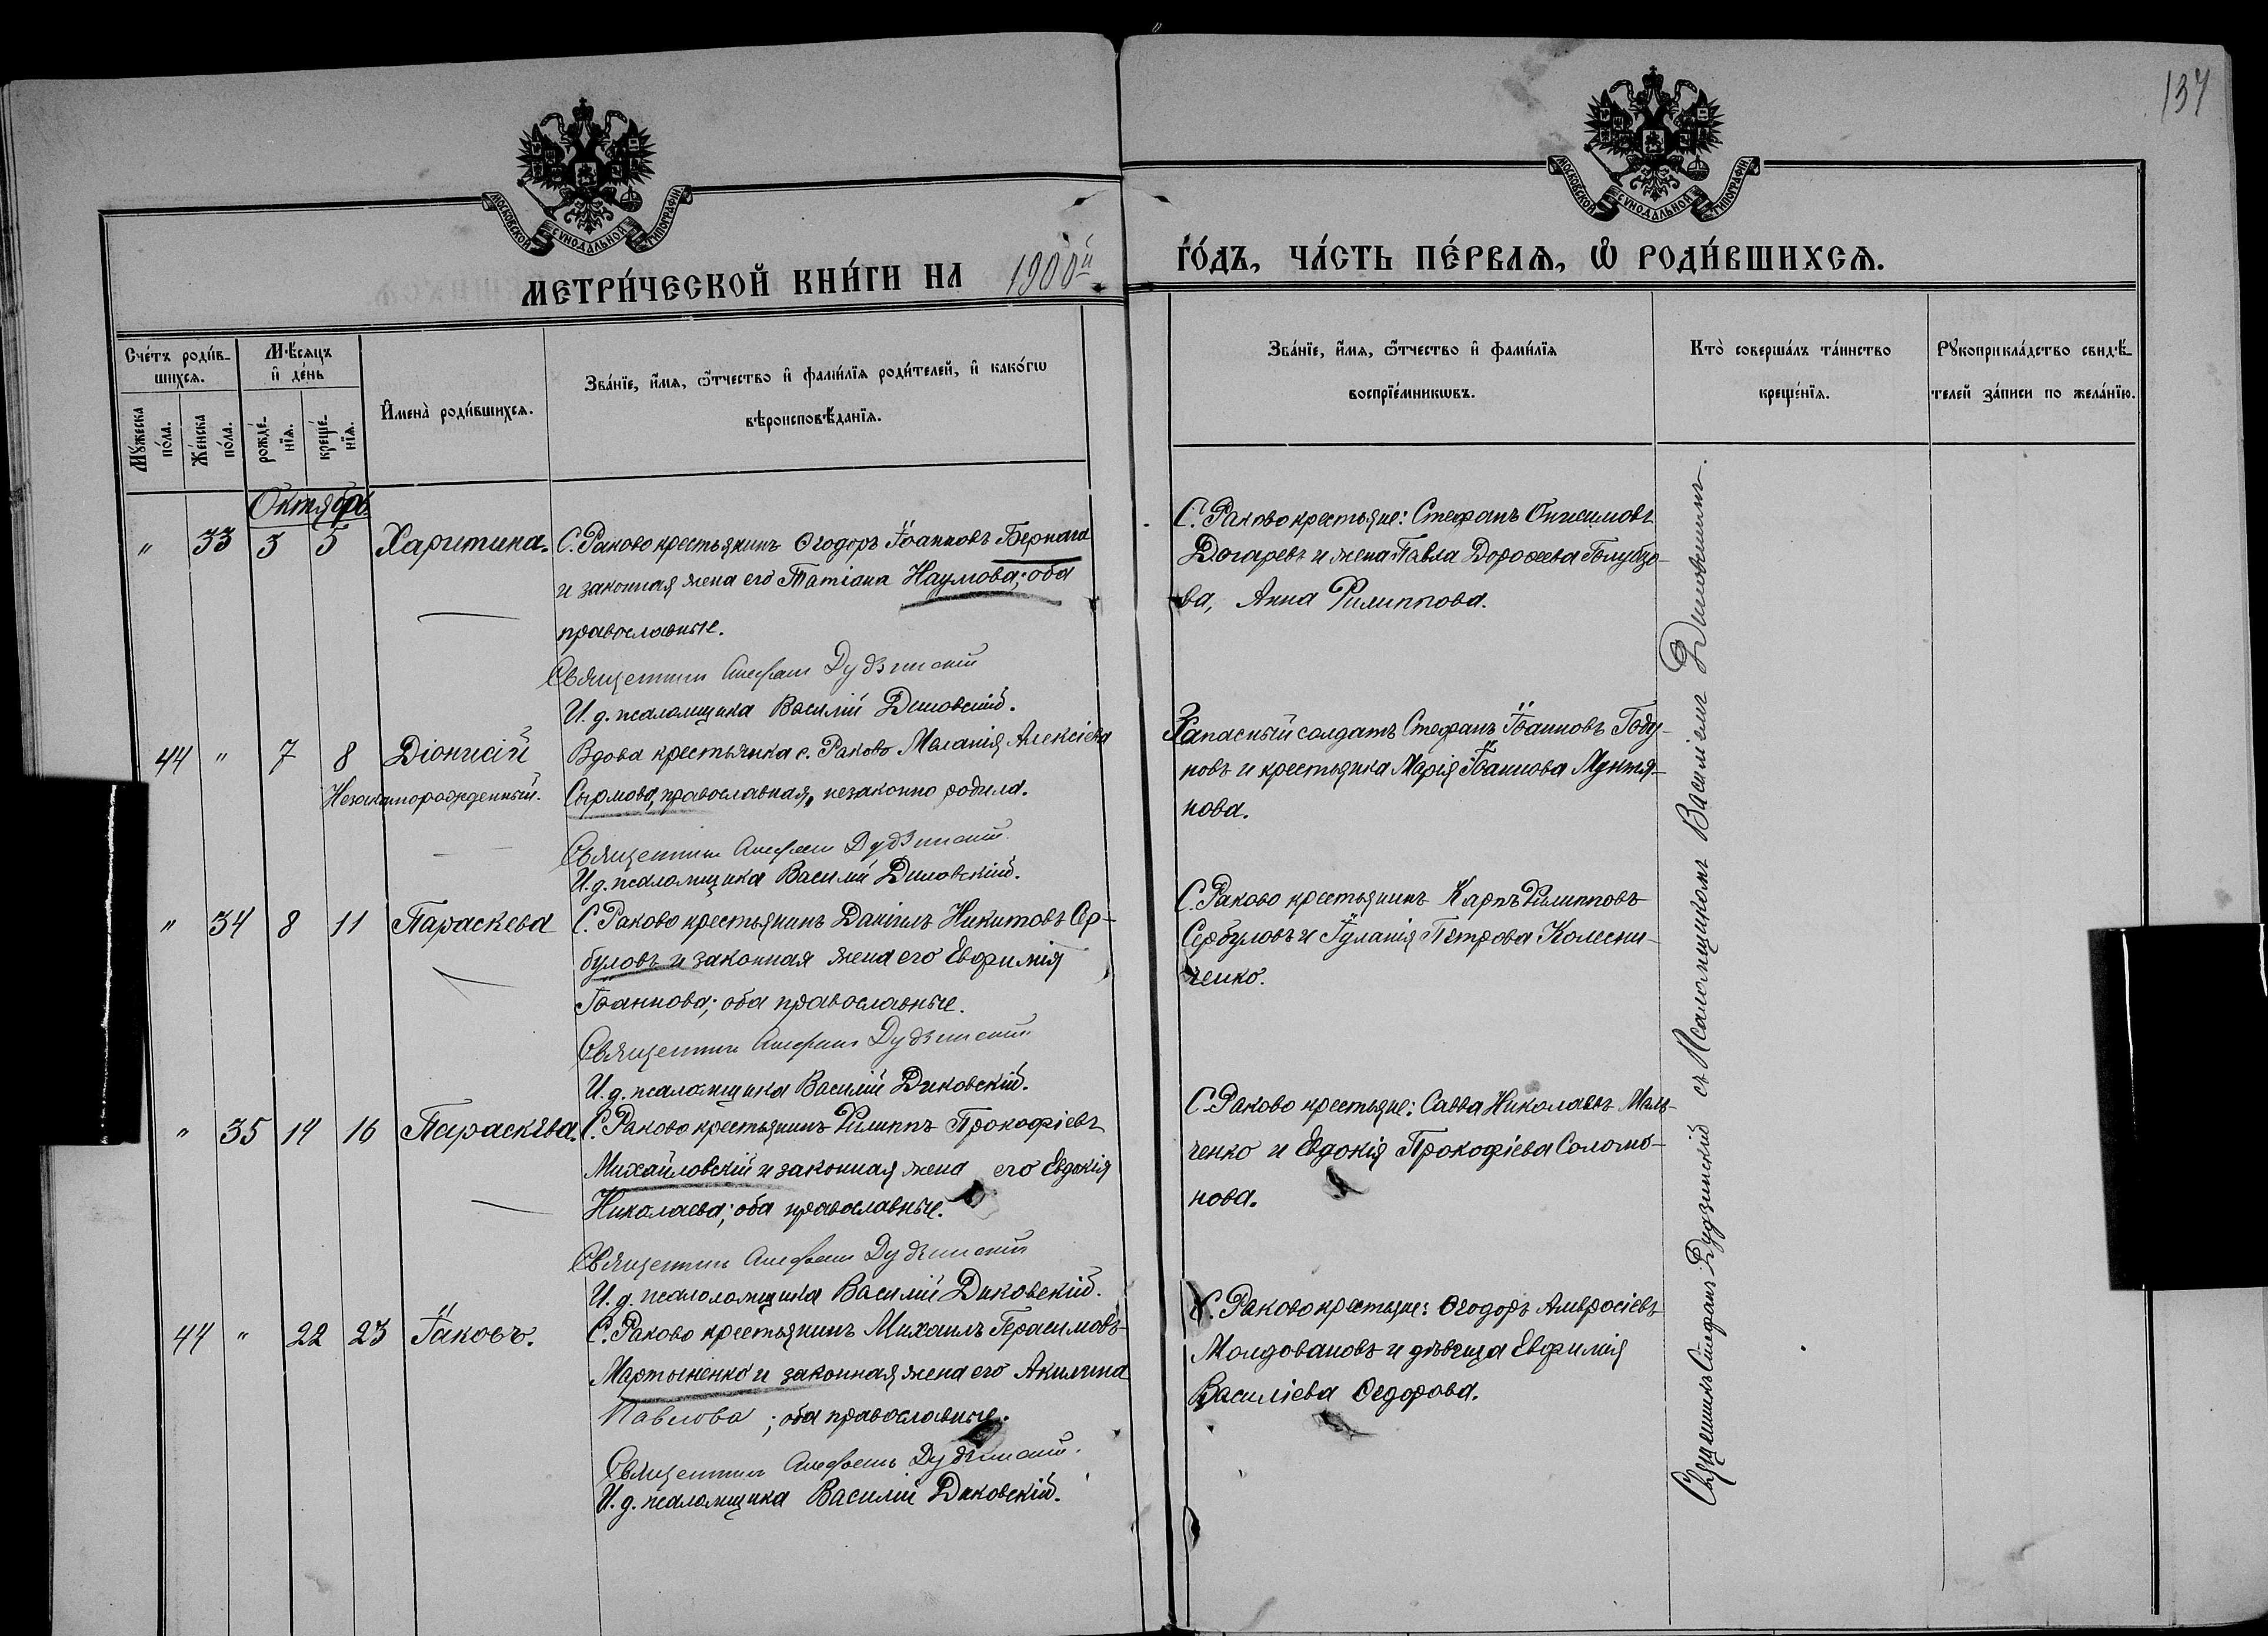 137
МОСКОВСКОЙ СѴНОДАЛЬНОЙ ТИПОГРАФІИ
МОСКОВСКОЙ СѴНОДАЛЬНОЙ ТИПОГРАФІИ
МЕТРИ́ЧЕСКОЙ КНИ́ГИ НА 1900й
ГО́ДЪ, ЧА́СТЬ ПЕ́РВАѦ, Ѡ҆ РОДИ́ВШИХСѦ.
Сче́тъ роди́в-
шихсѧ.
Мꙋ́жеска
по́ла.
Же́нска
по́ла.
Мѣ́сѧцъ
и҆ де́нь
рожде́-
нїѧ.
креще́-
нїѧ.
И҆мена̀ роди́вшихсѧ.
Зва́нїе, и҆́мѧ, ѻ҆́тчество и҆ фами́лїѧ роди́телей, и҆ како́гѡ
вѣроисповѣ́данїѧ.
Зва́нїе, и҆́мѧ, ѻ҆́тчество и҆ фами́лїѧ
воспрїе́мникѡвъ.
Кто̀ соверша́лъ та́инство
креще́нїѧ.
Рꙋкоприкла́дство свидѣ́-
телей за́писи по жела́нїю.
Октябрь
" 33 3 5 Харитина.
С. Раково крестьянинъ Ѳеодоръ Іоанновъ Бернага
и законная жена его Татіана Наумова; оба
православные.
Священникъ Стефанъ Дудзинскій
И. д. псаломщика Василій Диковскій.
С. Раково крестьяне: Стефанъ Онисимовъ
Догаревъ и жена Павла Дороѳеева Голубцо-
ва, Анна Филиппова.
44 " 7 8 Діонисій
Незаконнорожденный.
Вдова крестьянка с. Раково Меланія Алексіева
Сырмова, православная, незаконно родила.
Священникъ Стефанъ Дудзинскій
И. д. псаломщика Василій Диковскій.
Запасный солдатъ Стефанъ Іоанновъ Году-
новъ и крестьянка Марія Іоаннова Мунтя-
нова.
" 34 8 11 Параскева
С. Раково крестьянинъ Даніилъ Никитовъ Сер-
буловъ и законная жена его Евфимія
Іоаннова; оба православные.
Священникъ Стефанъ Дудзинскій
И. д. псаломщика Василій Диковскій.
С. Раково крестьянинъ Карпъ Филипповъ
Сербуловъ и Іуланія Петрова Колесни-
ченко.
" 35 14 16 Параскева.
С. Раково крестьянинъ Филиппъ Прокофіевъ
Михайловскій и законная жена его Евдокія
Николаева; оба православные.
Священникъ Стефанъ Дудзинскій
И. д. псаломщика Василій Диковскій.
С. Раково крестьяне: Савва Николаевъ Маль-
ченко и Евдокія Прокофіева Соломо-
нова.
44 " 22 23 Іаковъ.
С. Раково крестьянинъ Михаилъ Герасимовъ
Мартыненко и законная жена его Акилина
Павлова; оба православные.
Священникъ Стефанъ Дудзинскій.
И. д. псаломщика Василій Диковскій.
С. Раково крестьяне: Ѳеодоръ Амвросіевъ
Молдовановъ и дѣвица Евфимія
Василіева Ѳедорова.
Священникъ Стефанъ Дудзинскій съ Псаломщикомъ Василіемъ Диковскимъ.